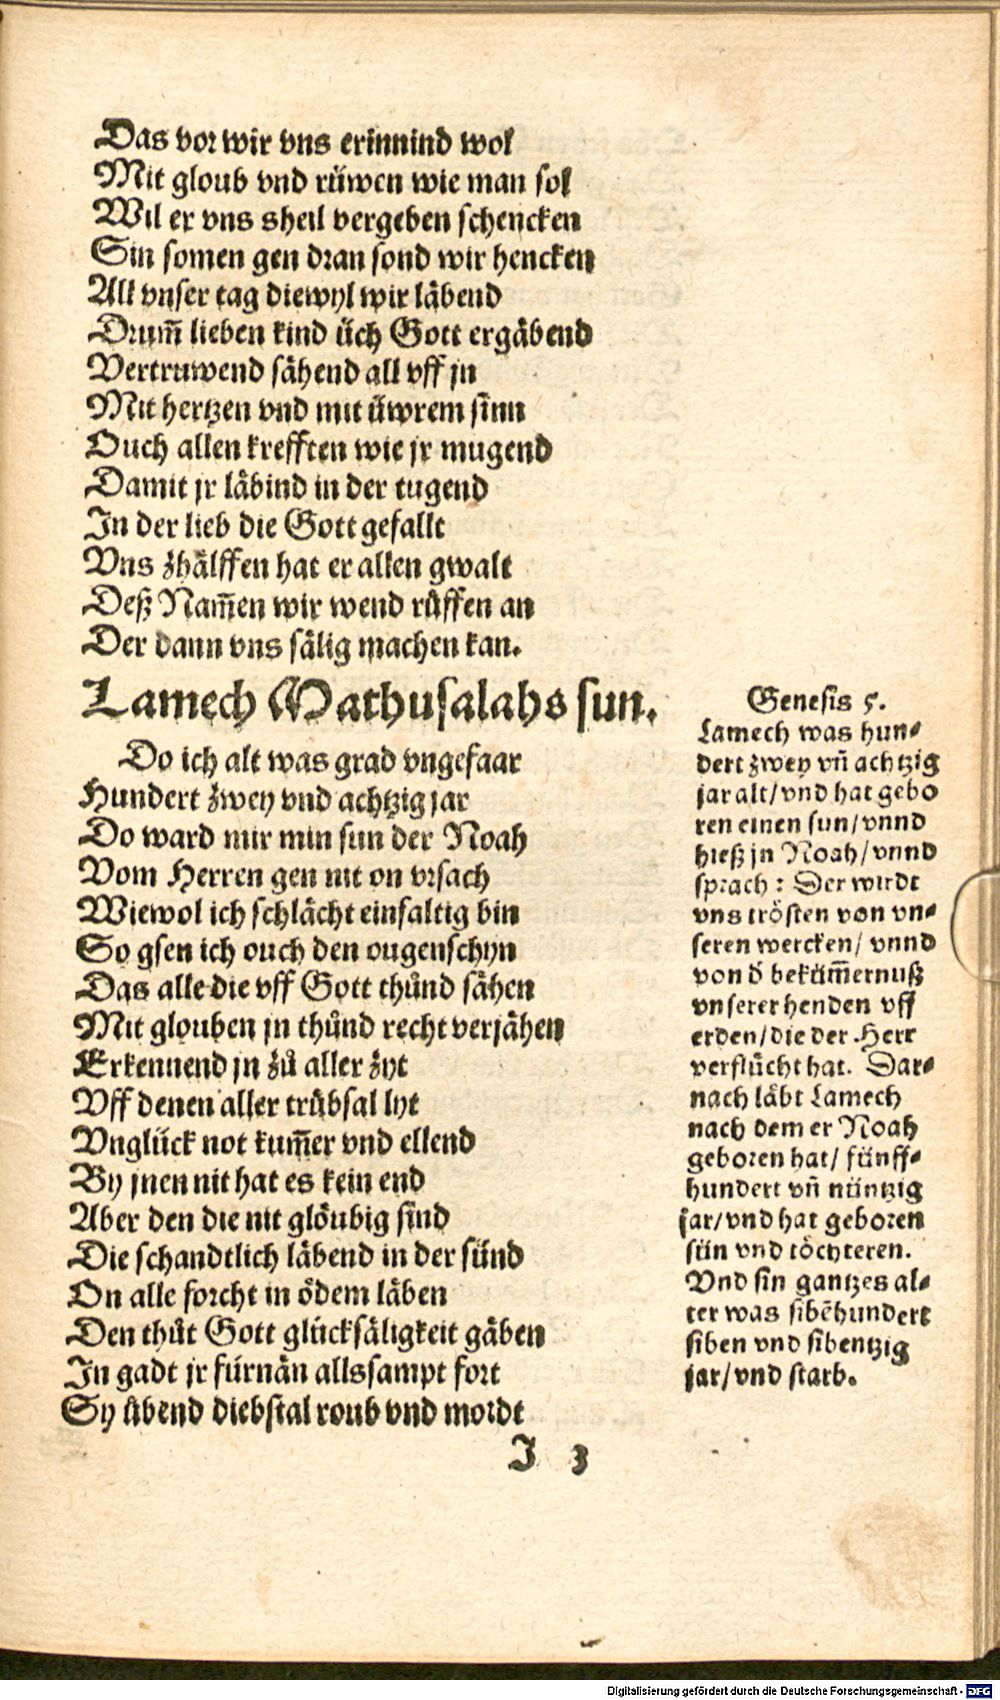 Das vor wir vns erinnind wol
Mit gloub vnd rüwen wie man sol
Wil er vns sheil vergeben schencken
Sin somen gen dran sond wir hencken
All vnser tag diewyl wir läbend
Drum̃ lieben kind üch Gott ergäbend
Vertruwend sähend all vff jn
Mit hertzen vnd mit üwrem sinn
Ouch allen krefften wie jr mugend
Damit jr läbind in der tugend
In der lieb die Gott gefallt
Vns zhälffen hat er allen gwalt
Deß Nam̃en wir wend růffen an
Der dann vns sälig machen kan.
Lamech Mathusalahs sun.
Do ich alt was grad vngefaar
Hundert zwey vnd achtzig jar
Do ward mir min sun der Noah
Vom Herren gen nit on vrsach
Wiewol ich schlächt einfaltig bin
So gsen ich ouch den ougenschyn
Das alle die vff Gott thůnd sähen
Mit glouben jn thůnd recht verjähen
Erkennend jn zů aller zyt
Vff denen aller trübsal lyt
Vnglück not kum̃er vnd ellend
By jnen nit hat es kein end
Aber den die nit glöubig sind
Die schandtlich läbend in der sünd
On alle forcht in ödem läben
Den thůt Gott glücksäligkeit gäben
In gadt jr fürnän allssampt fort
Sy übend diebstal roub vnd mordt
I 3
Genesis 5.
Lamech was hun⸗
dert zwey vñ achtzig
jar alt/vnd hat gebo
ren einen sun/vnnd
hieß jn Noah/vnnd
sprach: Der wirdt
vns trösten von vn⸗
seren wercken/vnnd
von d̕ beküm̃ernuß
vnserer henden vff
erden/die der Herr
verflůcht hat. Dar⸗
nach läbt Lamech
nach dem er Noah
geboren hat/fünff⸗
hundert vñ nüntzig
jar/vnd hat geboren
sün vnd töchteren.
Vnd sin gantzes al⸗
ter was sibẽhundert
siben vnd sibentzig
jar/vnd starb.
Digitalisierung gefördert durch die Deutsche Forschungsgemeinschaft - DFG